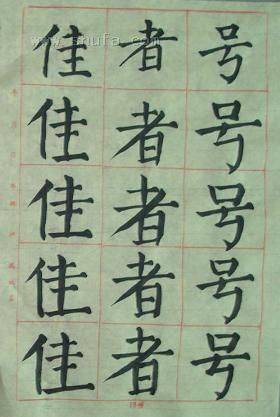 佳 者 号
佳 者 号
佳 者 号
佳 者 号
佳 者 号